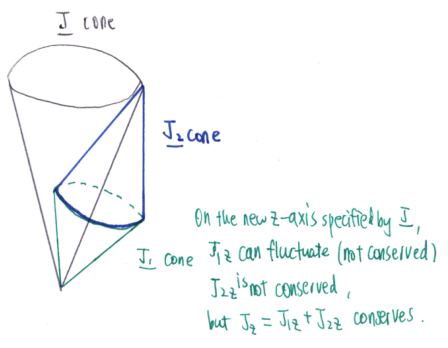 J cone
J₂ cone
J₁ cone
On the new z-axis specified by J,
J₁z can fluctuate (not conserved)
J₂z is not conserved,
but Jz = J₁z + J₂z conserves.